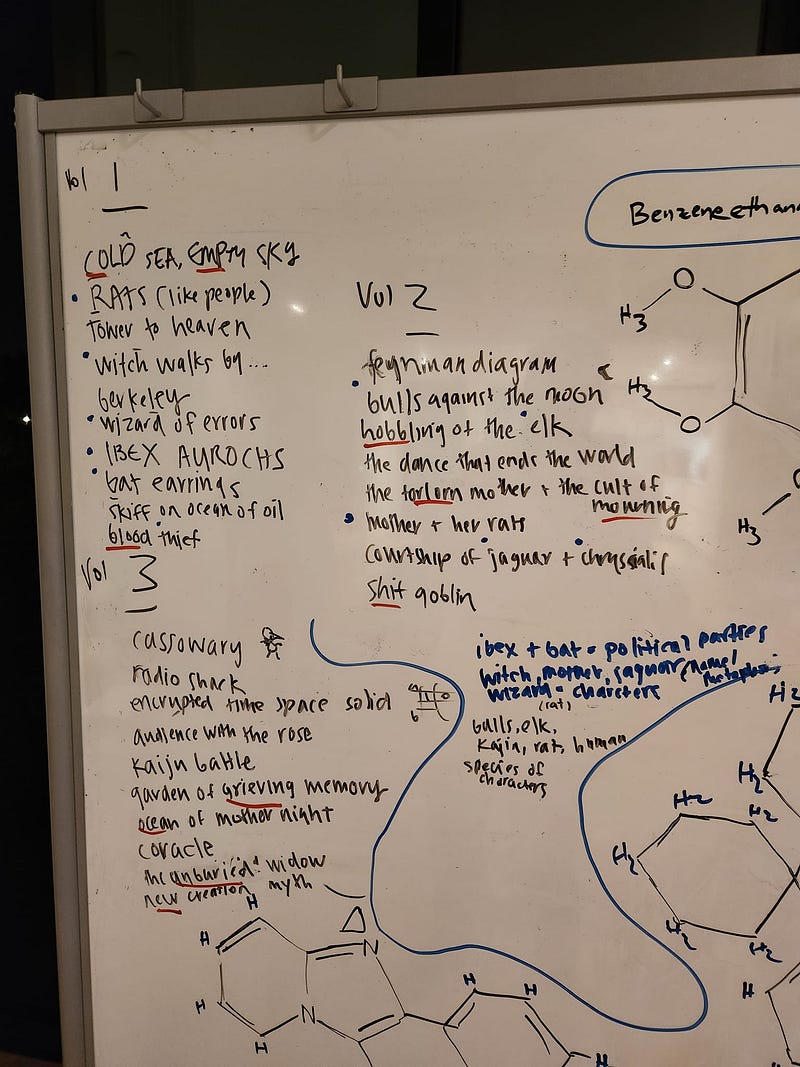 Vol 1
COLD SEA, EMPTY SKY
RATS (like people)
tower to heaven
witch walks by ...
berkeley
wizard of errors
IBEX AUROCHS
bat earrings
skiff on ocean of oil
blood thief
Vol 2
feynman diagram
bulls against the moon
hobbling of the elk
the dance that ends the world
the forlorn mother + the cult of
mourning
mother + her rats
courtship of jaguar + chrysalis
shit goblin
Vol 3
cassowary
radio shack
encrypted time space solid
audience with the rose
kaiju battle
garden of grieving memory
ocean of mother night
coracle
the unburied widow
new creation myth
ibex + bat = political parties
witch, mother, jaguar (name/
wizard = charcters
(rat)
bulls, elk,
kajiu, rat, human
species of
characters
Benzeneethan
O
H3
H3
O
H3
H2
H2
H2
H2
H2
H2
H2
H
H
H
H
N
N
Δ
H
H
H
H